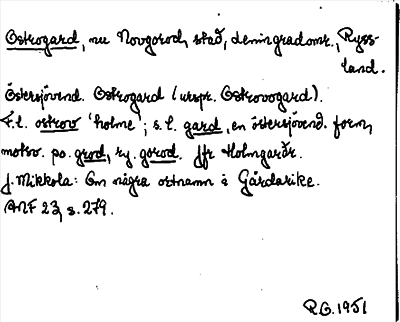 Ostrogard, nu Novgorod, stad, Leningradomr., Ryss-
land.
Östersjövend. Ostrogard (urspr. Ostrovogard).
F.l. ostrov 'holme'; s.l. gard, en östersjövend. form,
motsv. po. grod, ry. gorod. Jfr Holmgarðr.
J. Mikkola: Om några ortnamn i Gårdarike.
ANF 23, s. 279.
R.O. 1951